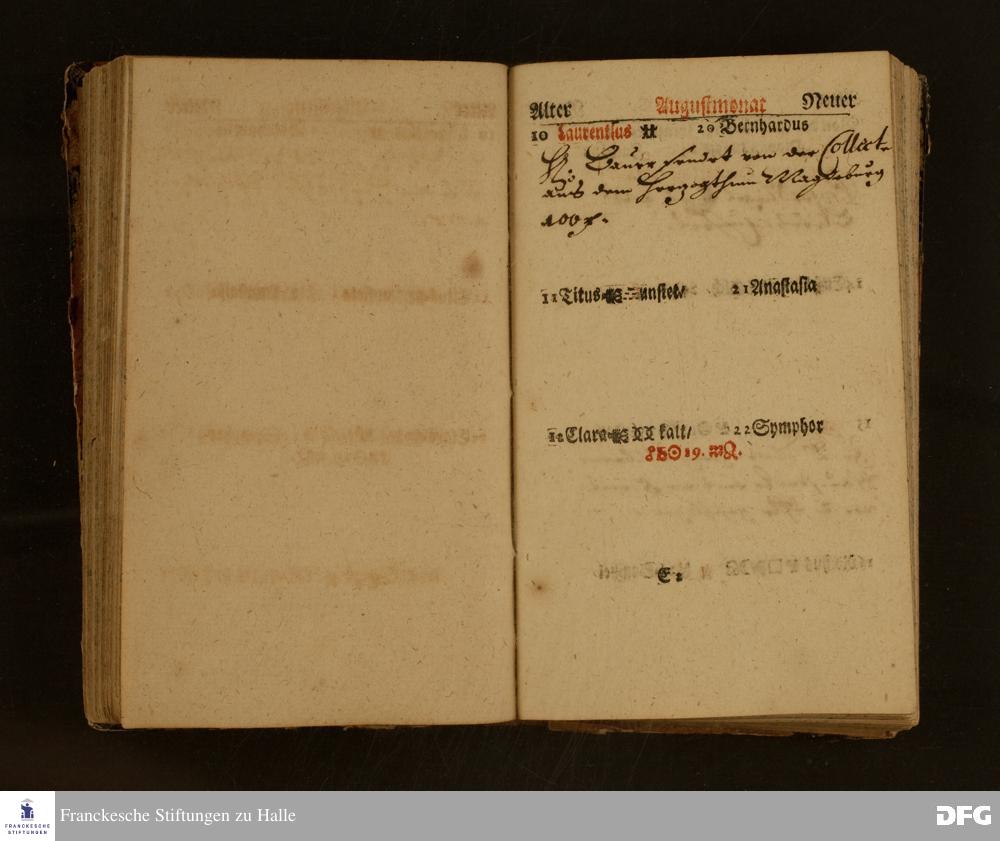 Alter Augustmonat Neuer
10 Laurentius 20 Bernhardus
Bauer sendet von der Collect
aus dem Herzogthum Magdeburg
100
11 Titus unstet/ 21 Anastasia
12 Clara kalt/ 22 Symphor
19.
E 2
FRANCKESCHE STIFTUNGEN
Franckesche Stiftungen zu Halle
DFG